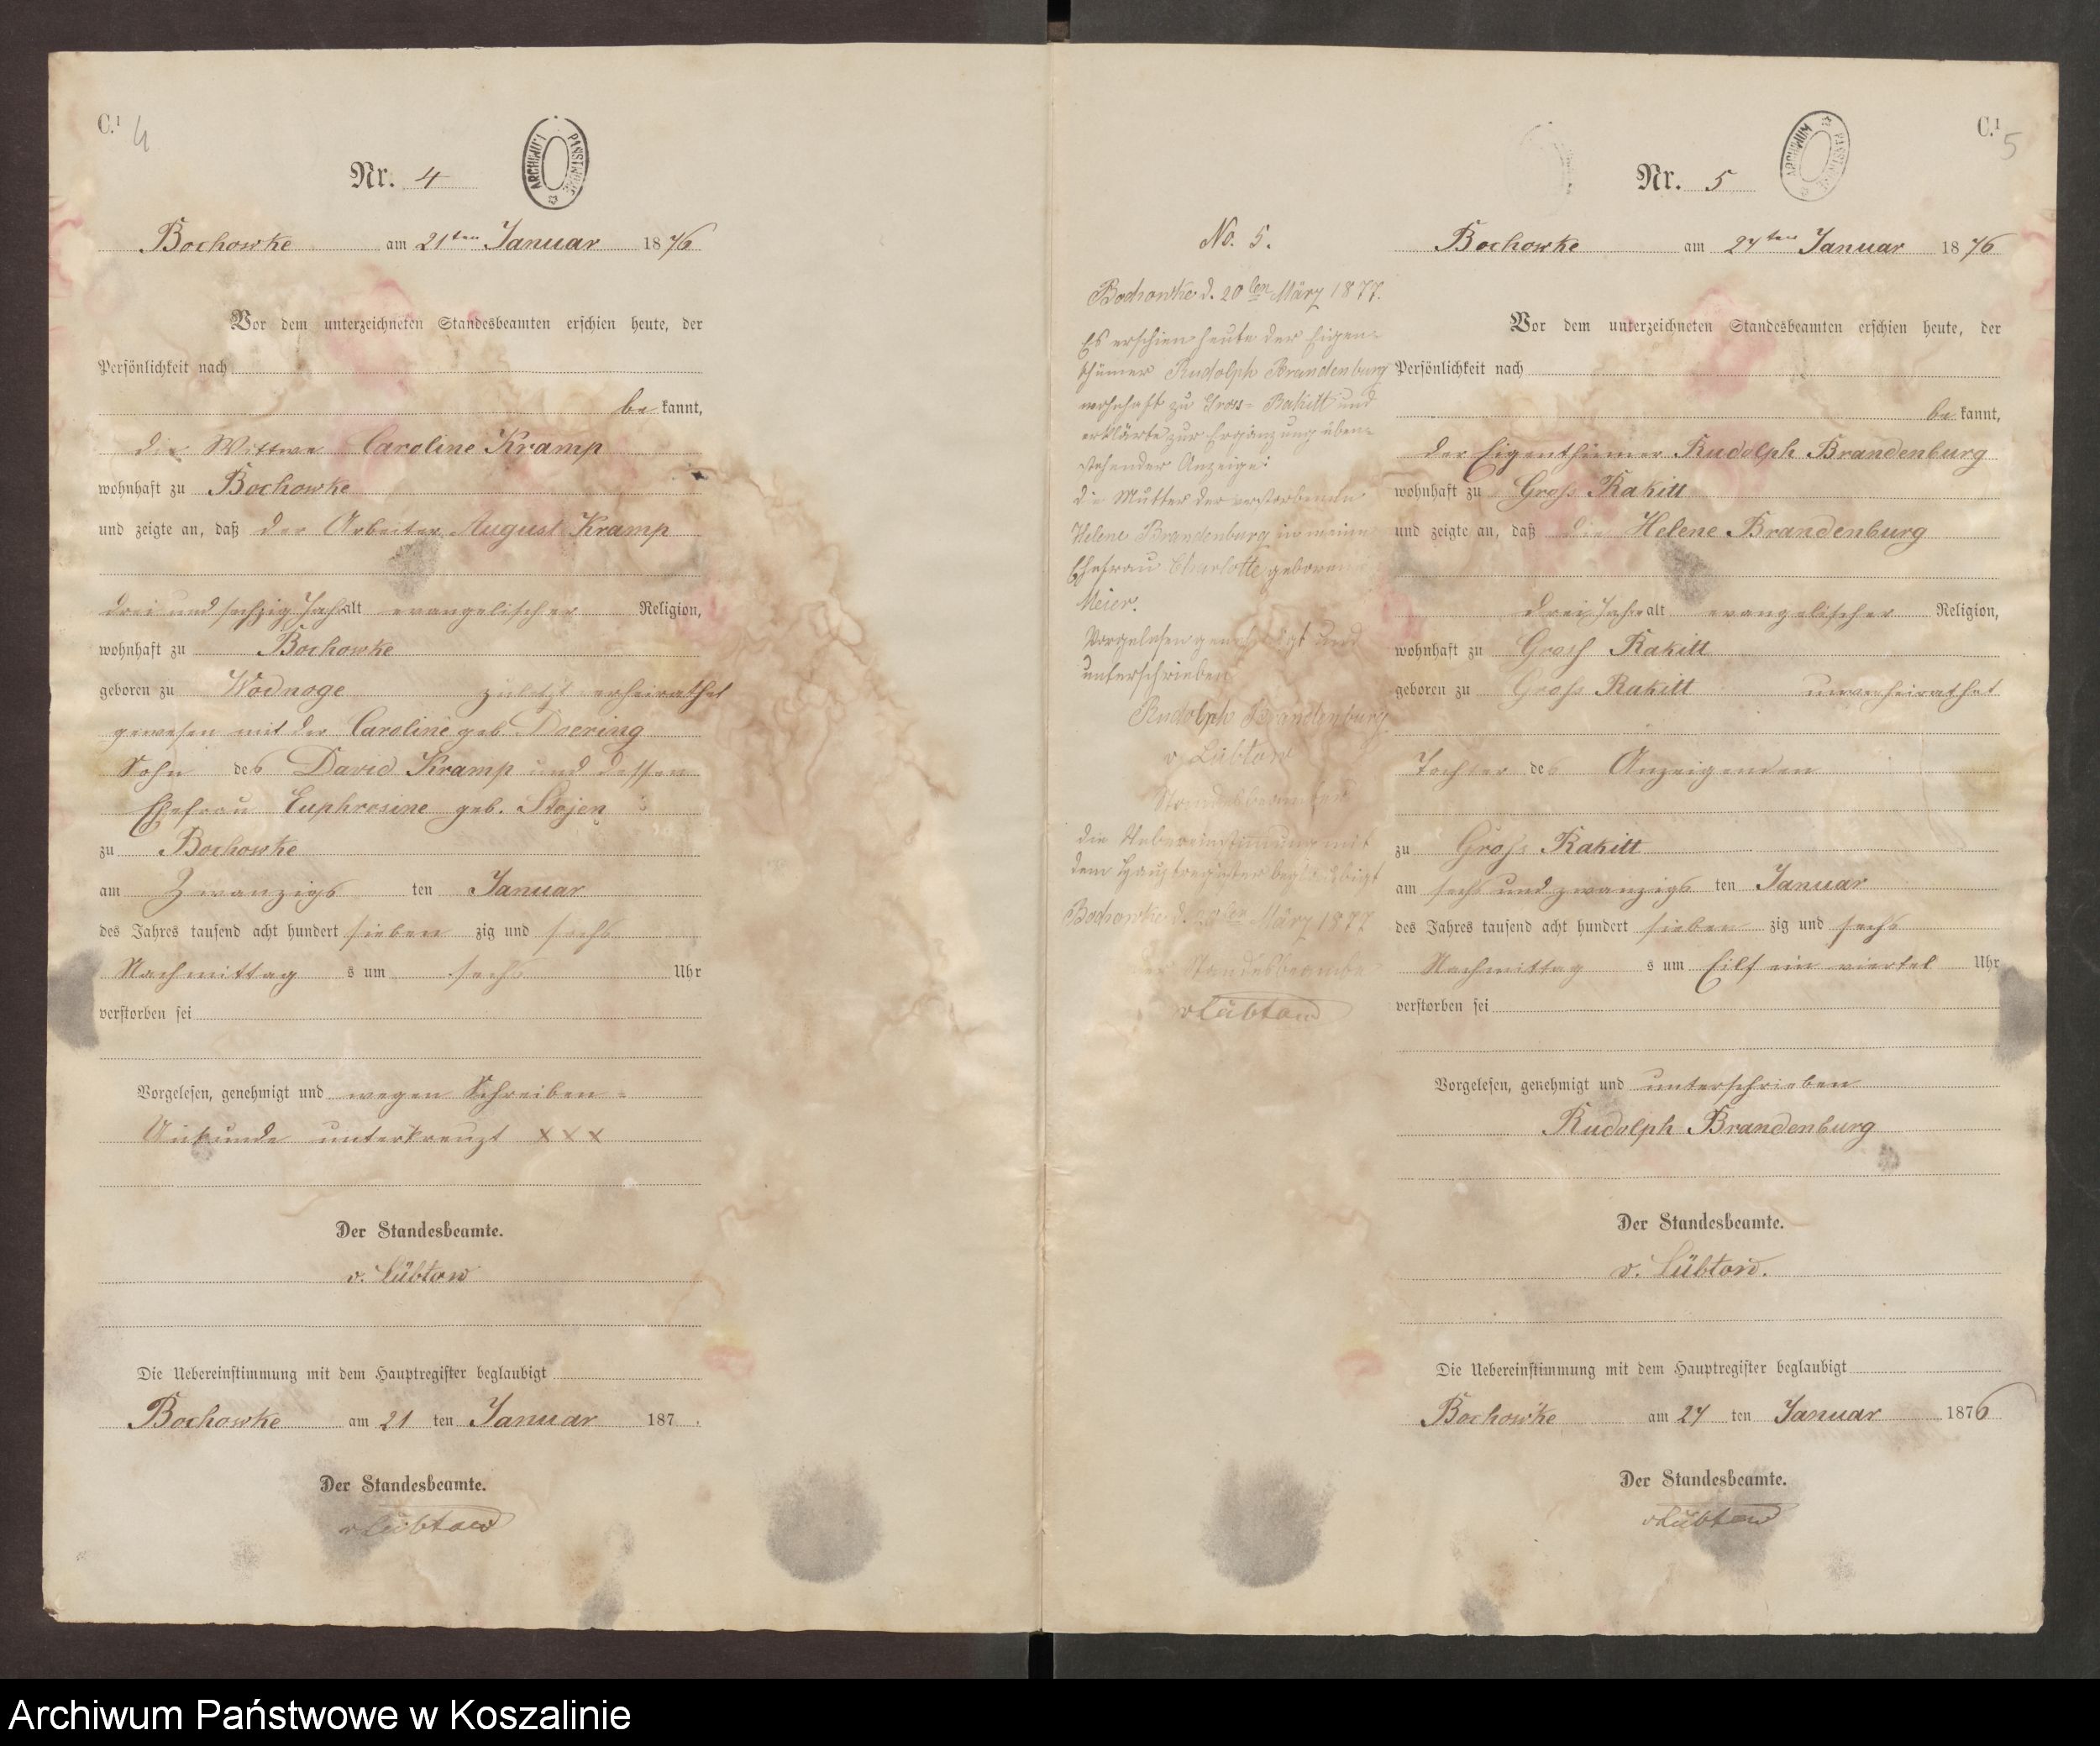 C.1
4
Nr. 4
ARCHIWUM PAŃSTWOWE
Bochowke am 21ten Januar 1876
Vor dem unterzeichneten Standesbeamten erschien heute, der
Persönlichkeit nach
be kannt,
die Wittwe Caroline Kramp
wohnhaft zu Bochowke
und zeigte an, daß der Arbeiter August Kramp
drei und sechzig Jahr alt evangelischer Religion,
wohnhaft zu Bochowke
geboren zu Wodnoge zuletzt verheirathet
gewesen mit der Caroline geb. Doering
Sohn des David Kramp und dessen
Ehefrau Euphrosine geb. Stojen
zu Bochowke
am Zwanzigs ten Januar
des Jahres tausend acht hundert sieben zig und sechs
Nachmittag s um sechs Uhr
verstorben sei
Vorgelesen, genehmigt und wegen Schreiben-
Unkunde unterkreuzt XXX
Der Standesbeamte.
v. Lübtow
Die Uebereinstimmung mit dem Hauptregister beglaubigt
Bochowke am 21 ten Januar 187 .
Der Standesbeamte.
vLübtow
C.1
5
Nr. 5
ARCHIWUM PAŃSTWOWE
No. 5.
Bochowke d. 20ten März 1877.
Es erschien heute der Eigen-
thümer Rudolph Brandenburg
wohnhaft zu Gross- Rakitt und
erklärte zur Ergänzung oben-
stehender Anzeige:
die Mutter der verstorbenen
Helene Brandenburg ist meine
Ehefrau Charlotte geborene
Meier.
Vorgelesen genehmigt und
unterschrieben
Rudolph Brandenburg
v. Lübtow
Standesbeamter
die Uebereinstimmung mit
dem Hauptregister beglaubigt
Bochowke d. 20ten März 1877
Der Standesbeamte
vLübtow
Bochowke am 24ten Januar 1876
Vor dem unterzeichneten Standesbeamten erschien heute, der
Persönlichkeit nach
be kannt,
der Eigenthümer Rudolph Brandenburg
wohnhaft zu Gross Rakitt
und zeigte an, daß die Helene Brandenburg
drei Jahr alt evangelischer Religion,
wohnhaft zu Gross Rakitt
geboren zu Gross Rakitt unverheirathet
Tochter des Anzeigenden
zu Gross Rakitt
am sechs und zwanzigs ten Januar
des Jahres tausend acht hundert sieben zig und sechs
Nachmittag s um Eilf ein viertel Uhr
verstorben sei
Vorgelesen, genehmigt und unterschrieben
Rudolph Brandenburg
Der Standesbeamte.
v. Lübtow.
Die Uebereinstimmung mit dem Hauptregister beglaubigt
Bochowke am 24 ten Januar 1876
Der Standesbeamte.
vLübtow
Archiwum Państwowe w Koszalinie